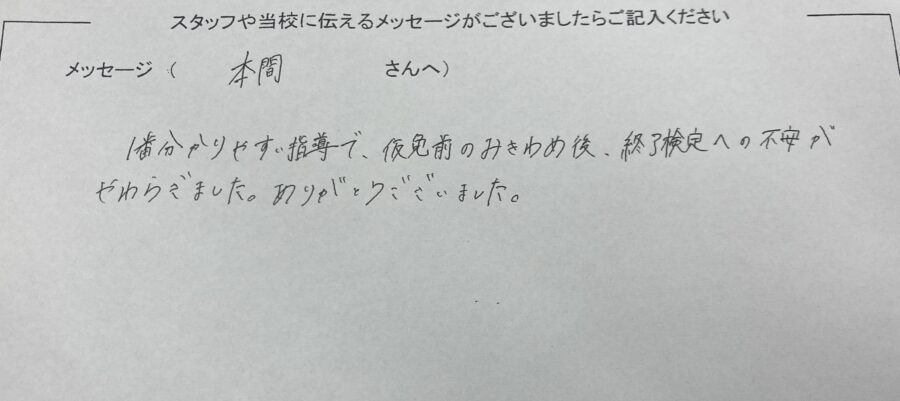 スタッフや当校に伝えるメッセージがございましたらご記入ください
メッセージ ( 本間 さんへ)
1番分かりやすい指導で、仮免前のみきわめ後、終了検定への不安が
やわらぎました。ありがとうございました。